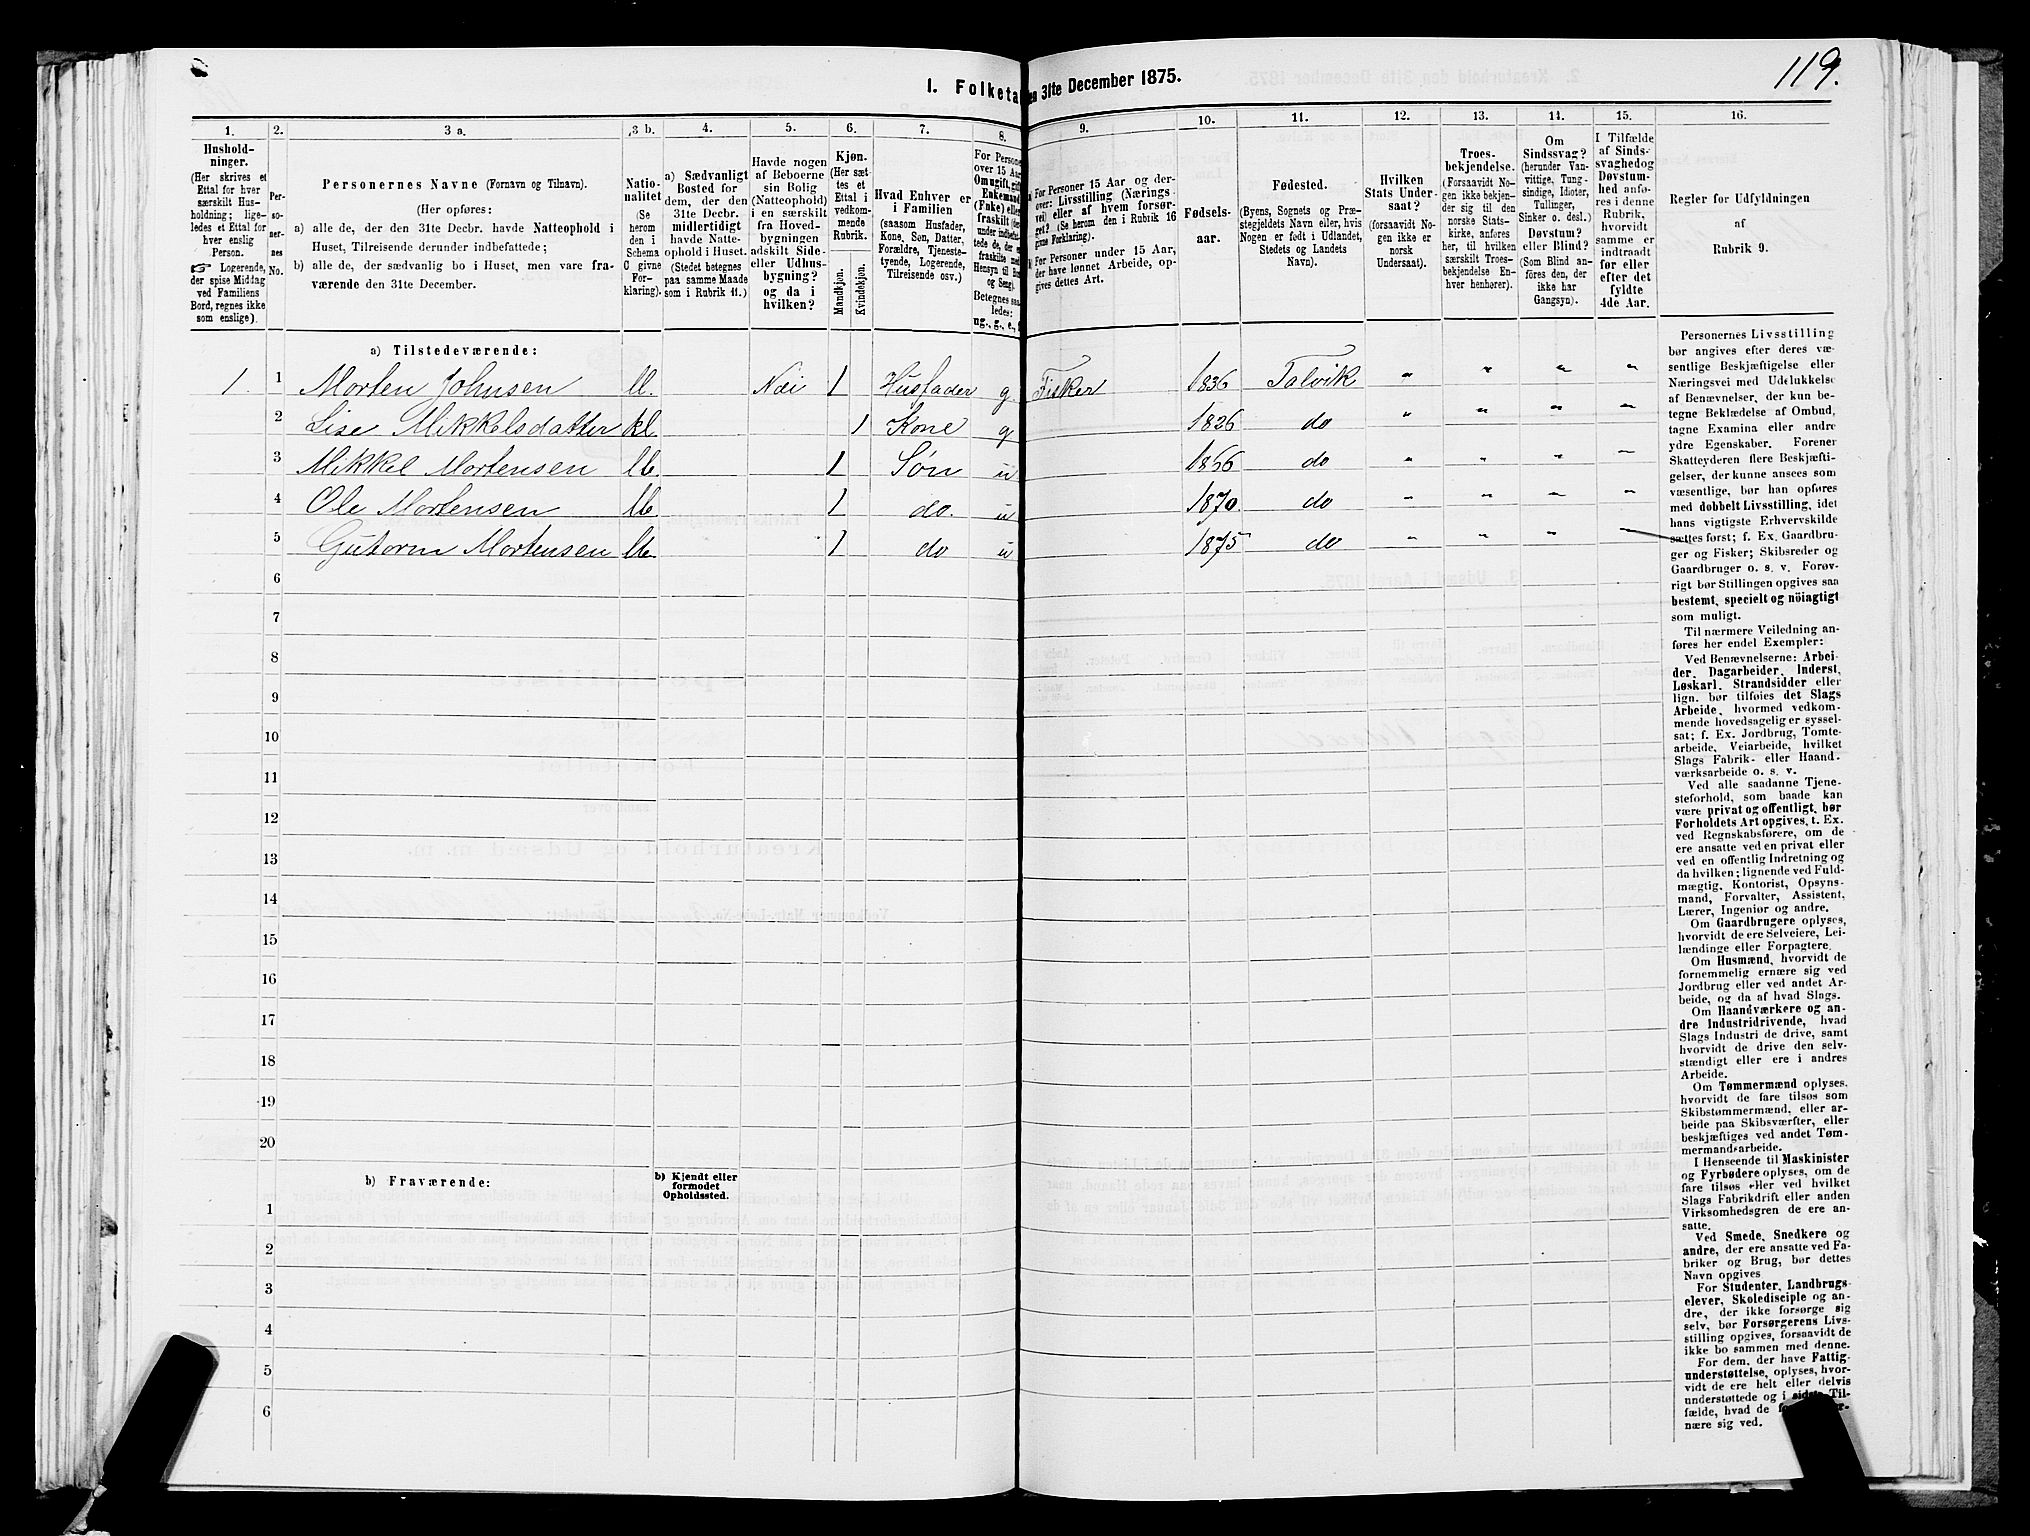 119.
I. Folketa
en 31te December 1875.
1. 2. 3 a. 3 b. 4. 5. 6. 7. 8. 9. 10. 11. 12. 13. 14. 15. 16.
Hushold-
ninger.
(Her skrives et
Ettal for hver
særskilt Hus-
holdning; lige-
ledes et Ettal for
hver enslig
Person.
☞ Logerende,
der spise Middag
ved Familiens
Bord, regnes ikke
som enslige).
Per-
so-
ner-
nes
No.
Personernes Navne (Fornavn og Tilnavn).
(Her opføres:
a) alle de, der den 31te Decbr. havde Natteophold i
Huset, Tilreisende derunder indbefattede;
b) alle de, der sædvanlig bo i Huset, men vare fra-
værende den 31te December.
Natio-
nalitet
(Se
herom
den i
Schema
C givne
For-
klaring).
a) Sædvanligt
Bosted for
dem, der den
31te Decbr.
midlertidigt
havde Natte-
ophold i Huset.
(Stedet betegnes
paa samme Maade
som i Rubrik 11.)
Havde nogen
af Beboerne
sin Bolig
(Natteophold)
i en særskilt
fra Hoved-
bygningen
adskilt Side-
eller Udhus-
bygning?
og da i
hvilken?
Kjøn.
(Her sæt-
tes et
Ettal i
vedkom-
mende
Rubrik.
Mandkjøn.
Kvindekjøn.
Hvad Enhver er
i Familien
(saasom Husfader,
Kone, Søn, Datter,
Forældre, Tjeneste-
tyende, Logerende,
Tilreisende osv.)
For Persone
over 15 Aar
Omugift, gift
Enkemand
(Fnke) eller
fraskilt (der-
under indbefat-
tede de, der er
fraskilte med
Hensyn til Bor
og Seng).
Betegnes saa
ledes:
ug., g., e., f.
For Personer 15 Aar og der-
over: Livsstilling (Nærings-
vei) eller af hvem forsør-
get? (Se herom den i Rubrik 16
givne Forklaring).
For Personer under 15 Aar,
der have lønnet Arbeide, op-
gives dettes Art.
Fødsels-
aar.
Fødested.
(Byens, Sognets og Præ-
stegjeldets Navn eller, hvis
Nogen er født i Udlandet,
Stedets og Landets
Navn).
Hvilken
Stats Under-
saat?
(forsaavidt No-
gen ikke er
norsk
Undersaat).
Troes-
bekjendelse.
(Forsaavidt No-
gen ikke bekjen-
der sig til den
norske Stats-
kirke, anføres
her, til hvilken
særskilt Troes-
bekjendelse En-
hver henhører).
Om
Sindssvag?
(herunder Van-
vittige, Tung-
sindige, Idioter,
Tullinger,
Sinker o. desl.)
Døvstum?
eller Blind?
(Som Blind an-
føres den, der
ikke har
Gangsyn).
I Tilfælde
af Sinds-
svaghed og
Døvstum-
hed anfø-
res i denne
Rubrik,
hvorvidt
samme er
indtraadt
før eller
efter det
fyldte
4de Aar.
Regler for Udfyldningen
af
Rubrik 9.
a) Tilstedeværende:
1. 1 Morten Johnsen M. Nei 1 Husfader g Fisker 1836 Talvik " " " "
2 Lise Mikkelsdatter kl. 1 Kone g 1826 do " " " "
3 Mikkel Mortensen M. 1 Søn u 1866 do " " " "
4 Ole Mortensen M. 1 do. u 1870. do " " " "
5 Gutorm Mortensen M. 1 do u 1875 do " " "
6
7
8
9
10
11
12
13
14
15
16
17
18
19
20
b) Fraværende:
b) Kjendt eller
formodet
Opholdssted.
1
2
3
4
5
6
Personernes Livsstilling
bør angives efter deres væ-
sentlige Beskjæftigelse eller
Næringsvei med Udelukkelse
af Benævnelser, der kun be-
tegne Beklædelse af Ombud,
tagne Examina eller andre
ydre Egenskaber. Forener
Skatteyderen flere Beskjæfti-
gelser, der kunne ansees som
væsentlige, bør han opføres
med dobbelt Livsstilling, idet
hans vigtigste Erhvervskilde
sættes først; f. Ex. Gaardbru-
ger og Fisker; Skibsreder og
Gaardbruger o. s. v. Forøv-
rigt bør Stillingen opgives saa
bestemt, specielt og nöiagtigt
som muligt.
Til nærmere Veiledning an-
føres her endel Exempler:
Ved Benævnelserne: Arbei-
der, Dagarbeider, Inderst,
Løskarl, Strandsidder eller
lign. bør tilføies det Slags
Arbeide, hvormed vedkom-
mende hovedsagelig er syssel-
sat; f. Ex. Jordbrug, Tomte-
arbeide, Veiarbeide, hvilket
Slags Fabrik- eller Haand-
værksarbeide o. s. v.
Ved alle saadanne Tjene-
steforhold, som baade kan
være privat og offentligt, bør
Forholdets Art opgives, t. Ex.
ved Regnskabsførere, om de
ere ansatte ved en privat eller
ved en offentlig Indretning og
da hvilken; lignende ved Fuld-
mægtig, Kontorist, Opsyns-
mand, Forvalter, Assistent,
Lærer, Ingeniør og andre.
Om Gaardbrugere oplyses,
hvorvidt de ere Selveiere, Lei-
lændinge eller Forpagtere.
Om Husmænd, hvorvidt de
fornemmelig ernære sig ved
Jordbrug eller ved andet Ar-
beide, og da af hvad Slags.
Om Haandværkere og an-
dre Industridrivende, hvad
Slags Industri de drive, samt
hvorvidt de drive den selv-
stændigt eller ere i andres
Arbeide.
Om Tømmermænd oplyses,
hvorvidt de fare tilsøs som
Skibstømmermænd, eller ar-
beide paa Skibsværfter, eller
beskjæftiges ved andet Tøm-
mermandsarbeide.
I Henseende til Maskinister
og Fyrbødere oplyses, om de
fare tilsøs eller ved hvilket
Slags Fabrikdrift eller anden
Virksomhedsgren de ere an-
satte.
Ved Smede, Snedkere og
andre, der ere ansatte ved Fa-
briker og Brug, bør dettes
Navn opgives
For Studenter, Landbrugs-
elever, Skoledisciple og an-
dre, der ikke forsørge sig
selv, bør Forsørgerens Livs-
stilling opgives, forsaavidt de
ikke bo sammen med denne.
For dem, der have Fattig-
understøttelse, oplyses, hvor-
vidt de ere helt eller delvis
understøttede og i sidste Til-
fælde, hvad de
nære sig ved.